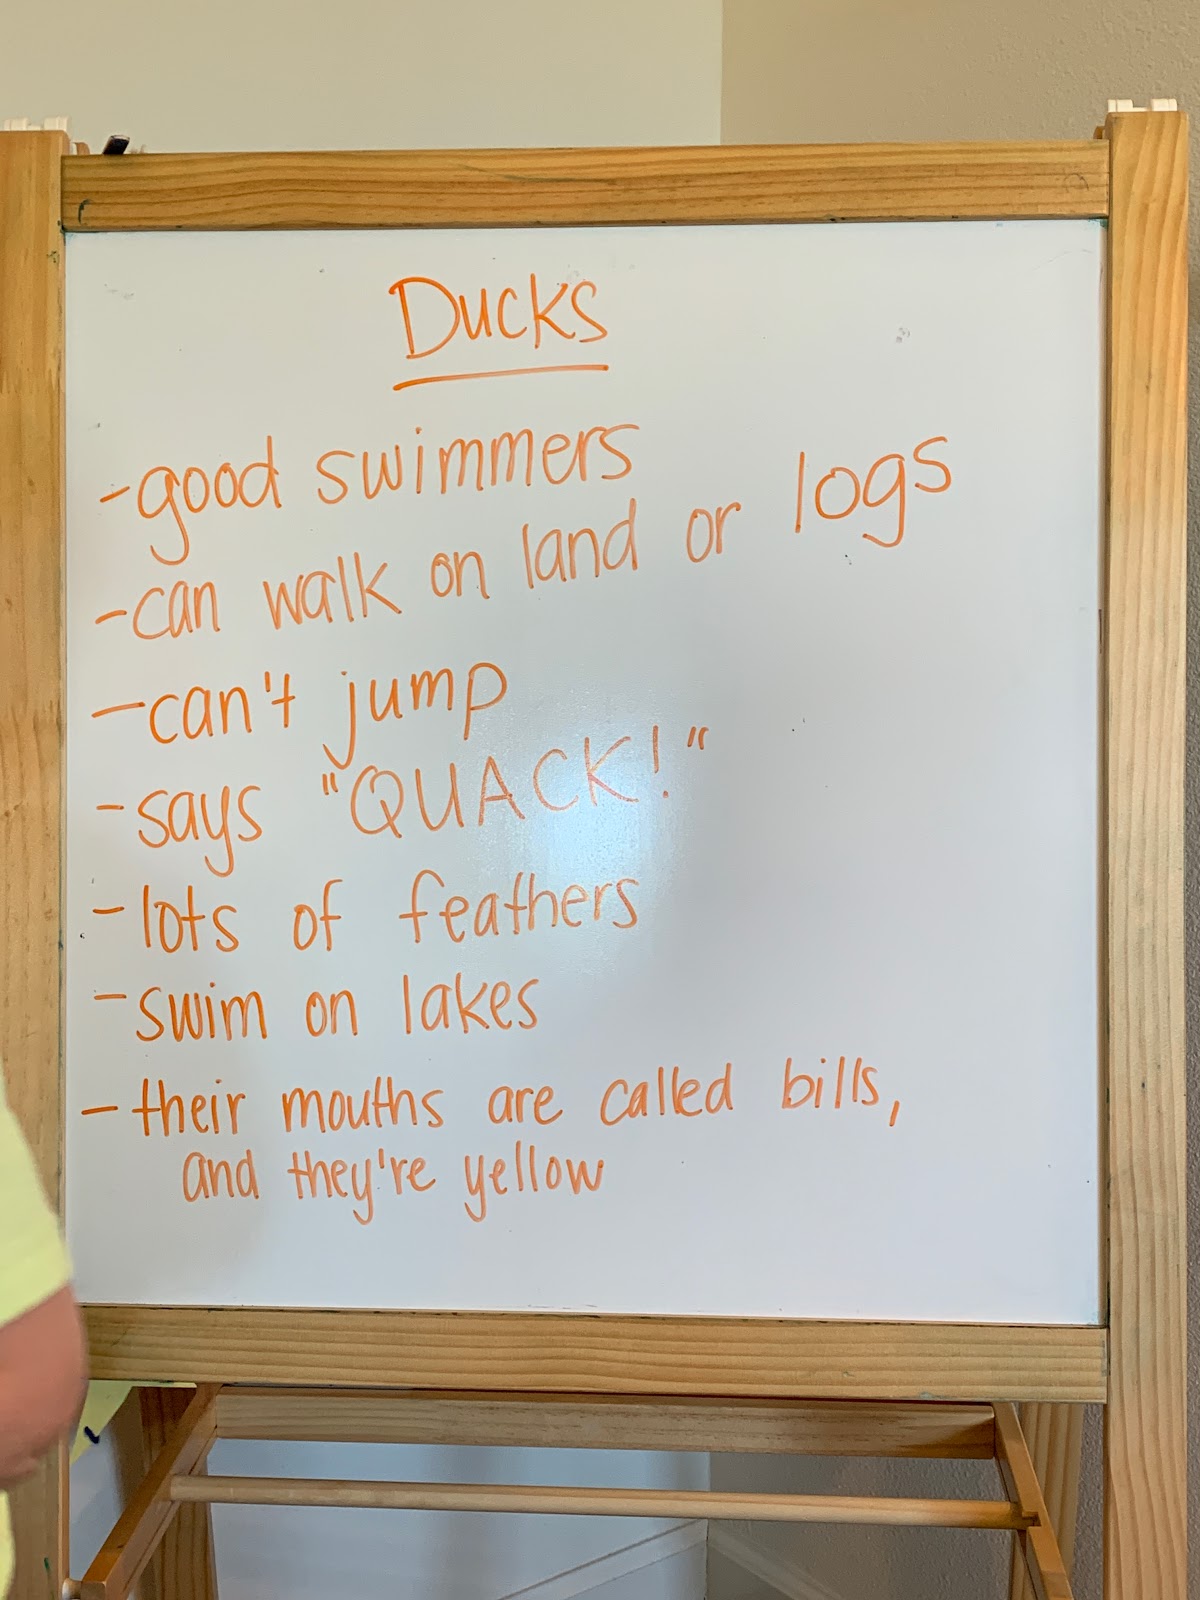 Ducks
-good swimmers
-can walk on land or logs
-can't jump
-says "QUACK!"
-lots of feathers
-swim on lakes
-their mouths are called bills,
and they're yellow